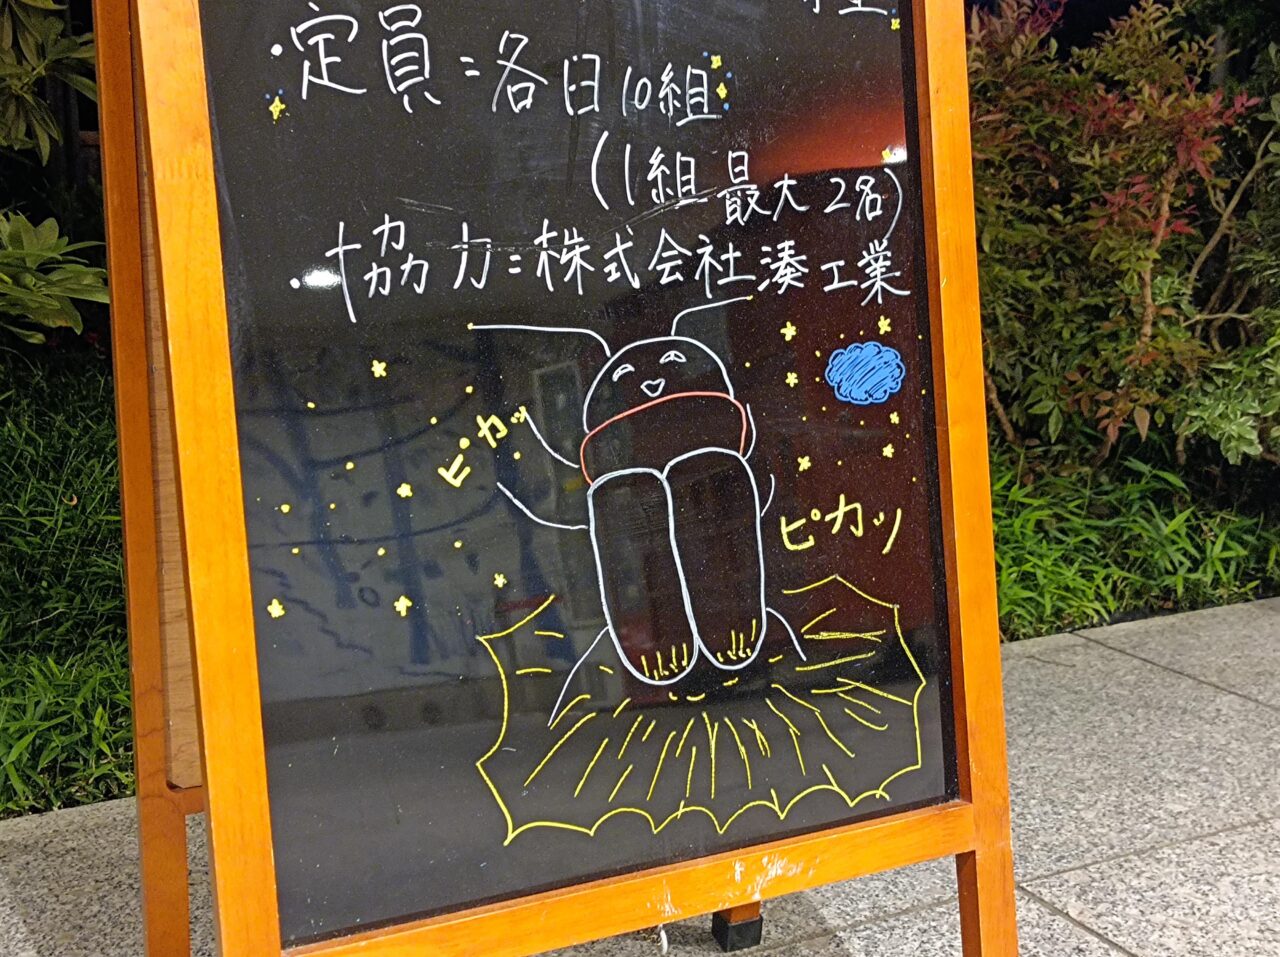 ・定員：各日10組
(1組 最大 2名)
・協力：株式会社湊工業
ピカッ
ピカッ